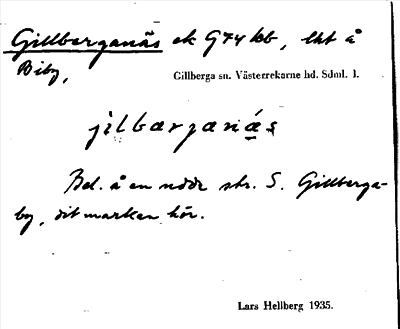 Gillberganäs ek G74 bb, lht å
Biby,
Gillberga sn. Västerrekarne hd. Sdml. l.
jilbærjanä́s
Bel. å en udde str. S. Gillberga-
by, dit marken hör.
Lars Hellberg 1935.